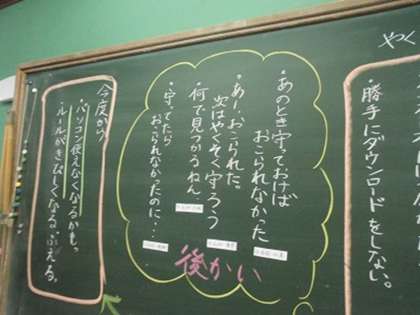 やく
・勝手にダウンロードをしない。
・あのとき守っておけば
おこられなかった
・あー、おこられた。
次はやくそく守ろう
・何で見つかるねん
・守ってたら
おこられなかったのに・・・
後かい
今度から
・パソコン使えなくなるかも。
・ルールがきびしくなる。ふえる。